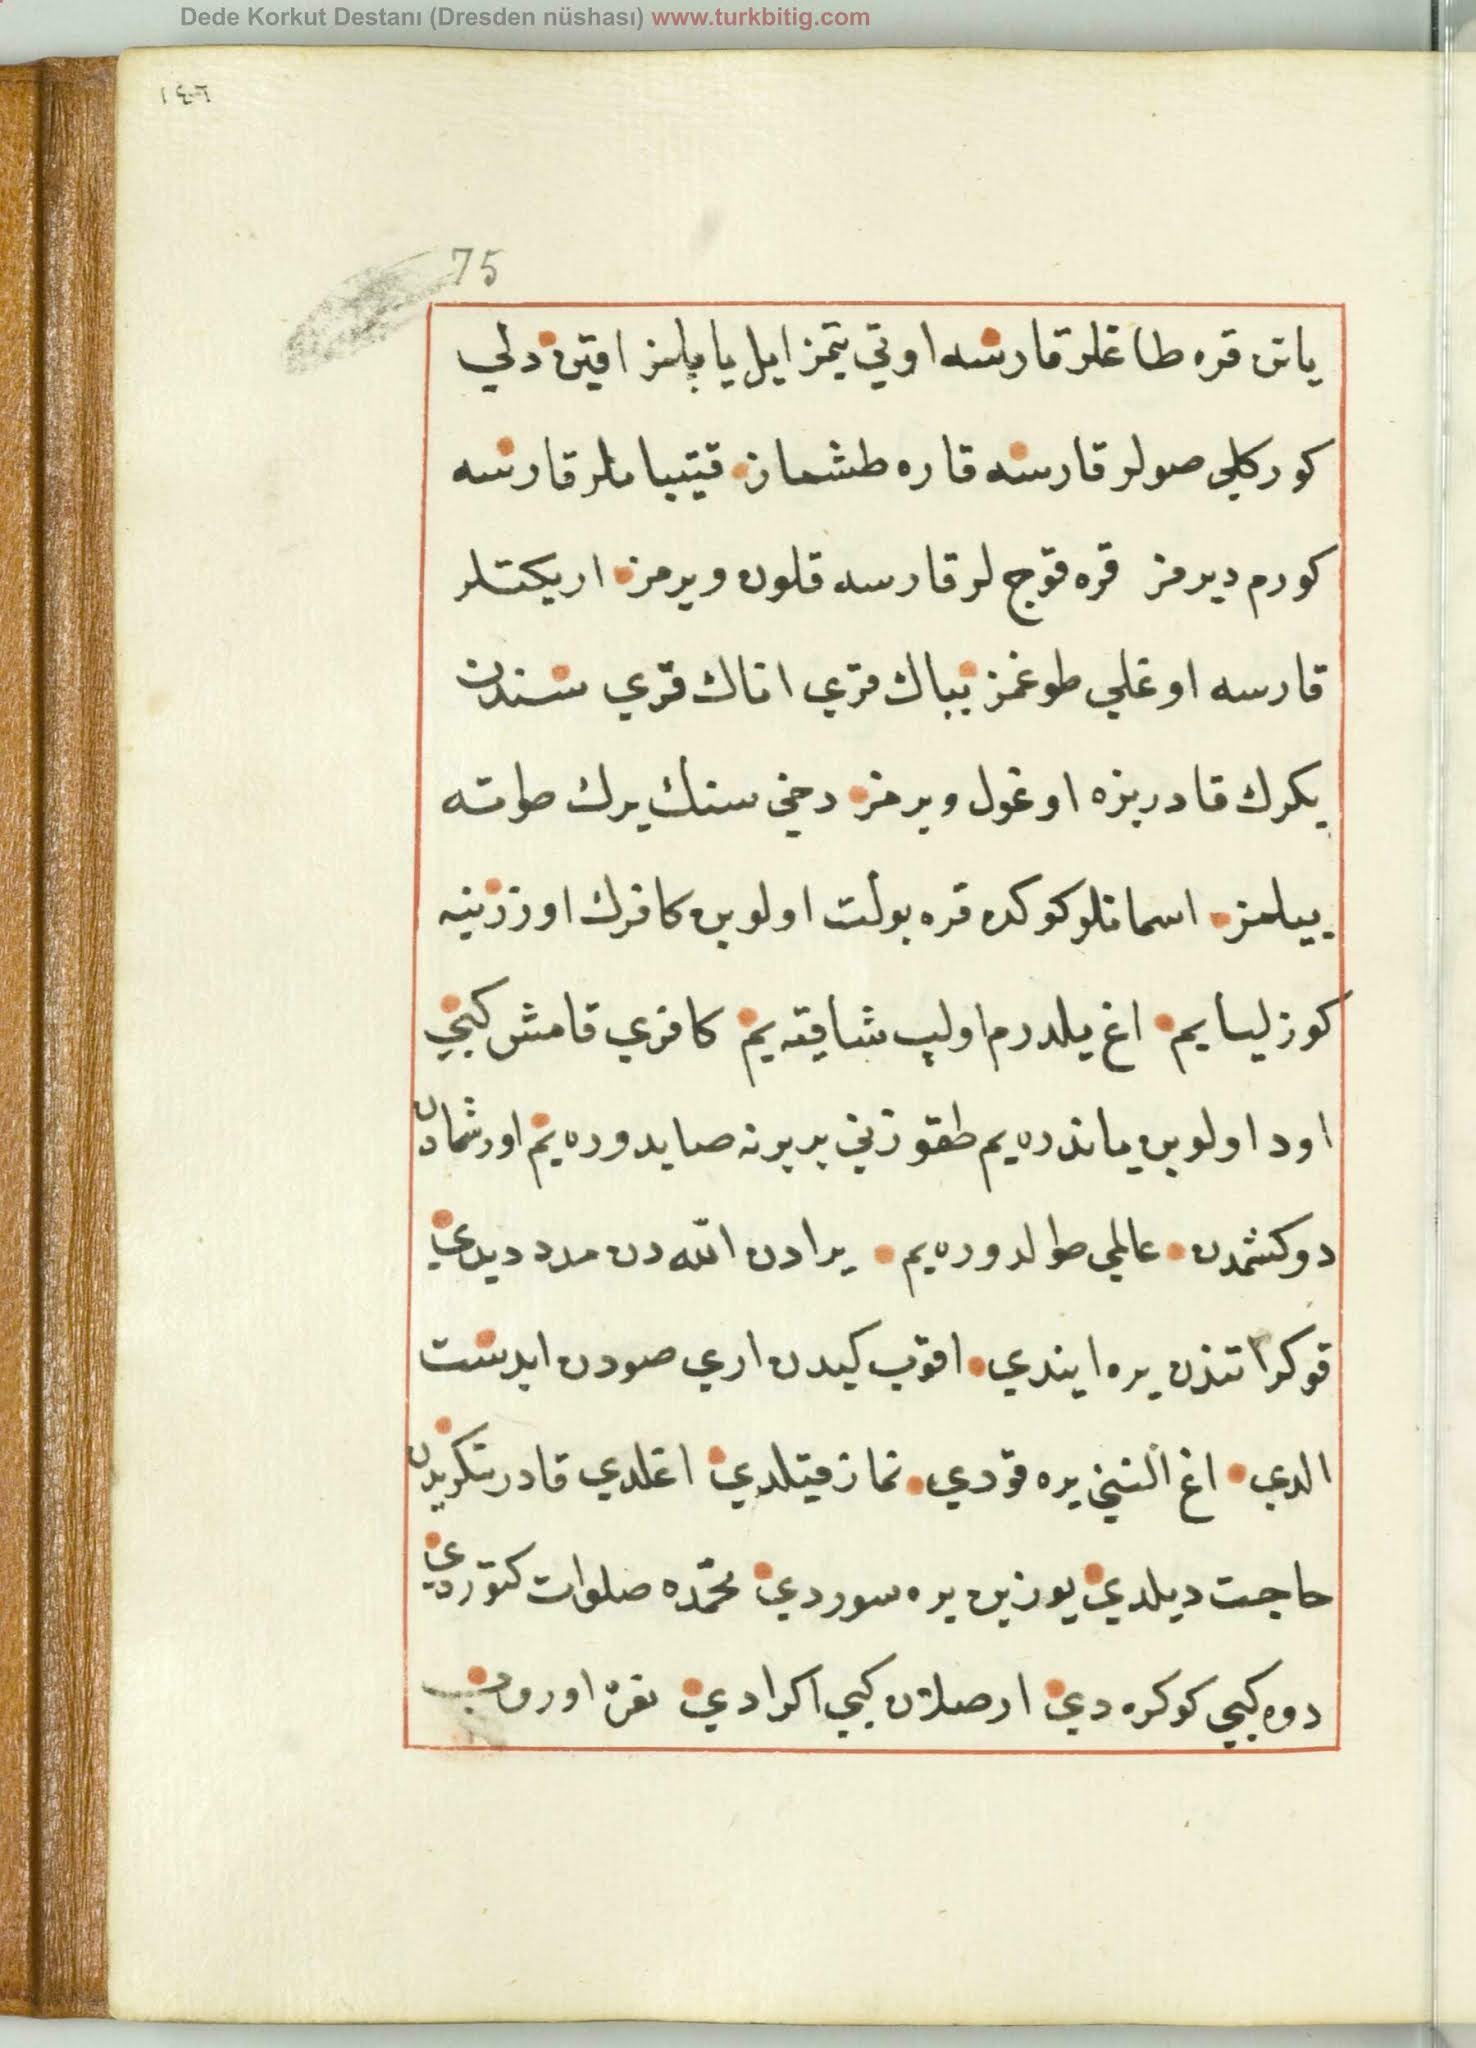 Dede Korkut Destanı (Dresden nüshası) www.turkbitig.com
١٤٦
75
ياتن قره طاغلر قارسه اوتي يتمز ايل يايلمز اقين دلي
كوركلي صولر قارسه قاره طشماز قيتبانلر قارسه
كورم ديرمز قره قوج لر قارسه قلون ويرمز اريكتلر
قارسه اوغلي طوغمز بباك قري اناك قري سندن
يكرك قادر بزه اوغول ويرمز دخي سنك يرك طوته
بيلمز اسمانلو كوكده قره بولت اولوبن كافرك اوززينه
كوزليايم اغ يلدرم اولپ شاقيه يم كافري قامش كبي
اود اولوبن ياندره يم طقوزني بر برنه صايدوره يم اورشمادن
دوكشمدن عالمي طولدوره يم يرادن الله دن مدد ديدي
قوكر اتندن يره ايندي اقوب كيدن اري صودن ابدست
الدي اغ النني يره قودي نماز قيلدي اغلدي قادر تكريدن
حاجت ديلدي يوزين يره سوردي محمده صلوات كتوردي
دوه كبي كوكره دي ارصلان كبي اكرادي نعره اوروب